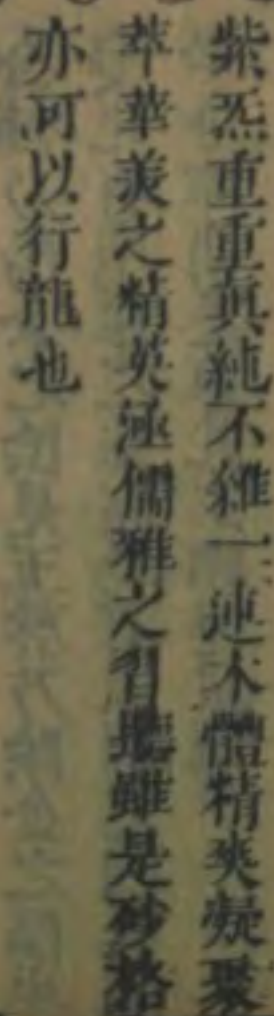 紫炁重重真純不雜一連木體精爽凝聚
萃華羡之精英涵儒雅之習雖是砂格
亦可以行龍也